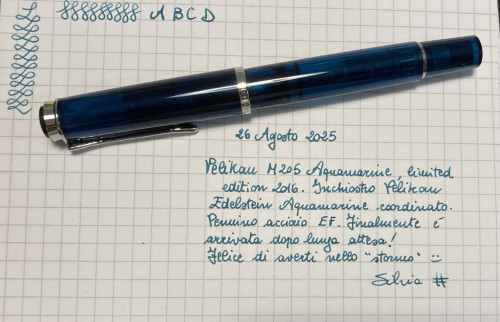 A B C D
26 Agosto 2025
Pelikan M205 Aquamarine, limited
edition 2016. Inchiostro Pelikan
Edelstein Aquamarine coordinato.
Pennino acciaio EF. Finalmente è
arrivata dopo lunga attesa!
Felice di averti nello "stormo" :)
Silvia #